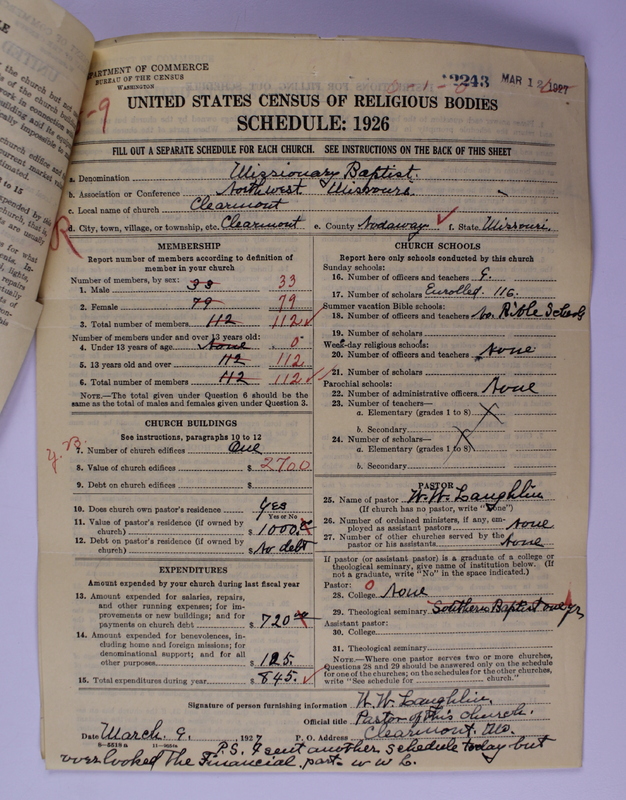 DEPARTMENT OF COMMERCE
BUREAU OF THE CENSUS
WASHINGTON
2243
MAR 12 1927
UNITED STATES CENSUS OF RELIGIOUS BODIES
SCHEDULE: 1926
FILL OUT A SEPARATE SCHEDULE FOR EACH CHURCH. SEE INSTRUCTIONS ON THE BACK OF THIS SHEET
a. Denomination Missionary Baptist.
b. Association or Conference Northwest Missouri
c. Local name of church Clearmont
d. City, town, village, or township, etc. Clearmont e. County Nodaway f. State Missouri.
MEMBERSHIP
Report number of members according to definition of
member in your church
Number of members, by sex:
1. Male 33 33
2. Female 79 79
3. Total number of members 112 112
Number of members under and over 13 years old:
4. Under 13 years of age None 0
5. 13 years old and over 112 112
6. Total number of members 112 112
NOTE.—The total given under Question 6 should be the
same as the total of males and females given under Question 3.
CHURCH BUILDINGS
See instructions, paragraphs 10 to 12
7. Number of church edifices One
8. Value of church edifices $ 2700
9. Debt on church edifices $
10. Does church own pastor's residence Yes
Yes or No
11. Value of pastor's residence (if owned by
church) $ 1000.
12. Debt on pastor's residence (if owned by
church) $ No debt
EXPENDITURES
Amount expended by your church during last fiscal year
13. Amount expended for salaries, repairs,
and other running expenses; for im-
provements or new buildings; and for
payments on church debt $ 720
14. Amount expended for benevolences, in-
cluding home and foreign missions; for
denominational support; and for all
other purposes. $ 125.
15. Total expenditures during year $ 845.
CHURCH SCHOOLS
Report here only schools conducted by this church
Sunday schools:
16. Number of officers and teachers 9.
17. Number of scholars Enrolled. 116.
Summer vacation Bible schools:
18. Number of officers and teachers No. Bible Schools
19. Number of scholars
Week-day religious schools:
20. Number of officers and teachers None
21. Number of scholars
Parochial schools:
22. Number of administrative officers None
23. Number of teachers—
a. Elementary (grades 1 to 8)
b. Secondary
24. Number of scholars—
a. Elementary (grades 1 to 8)
b. Secondary
PASTOR
25. Name of pastor W. W. Laughlin
(If church has no pastor, write "None")
26. Number of ordained ministers, if any, em-
ployed as assistant pastors None
27. Number of other churches served by the
pastor or his assistants None
If pastor (or assistant pastor) is a graduate of a college or
theological seminary, give name of institution below. (If
not a graduate, write "No" in the space indicated.)
Pastor: 0
28. College None
29. Theological seminary Southern Baptist one yr
Assistant pastor:
30. College
31. Theological seminary
NOTE.—Where one pastor serves two or more churches,
Questions 28 and 29 should be answered only on the schedule
for one of the churches; on the schedules for the other churches,
write "See schedule for church."
Signature of person furnishing information W. W. Laughlin.
Official title Pastor of this church.
Date March 9, 1927 P. O. Address Clearmont, Mo.
P.S. I sent another schedule today but
over looked the Financial part. W W L.